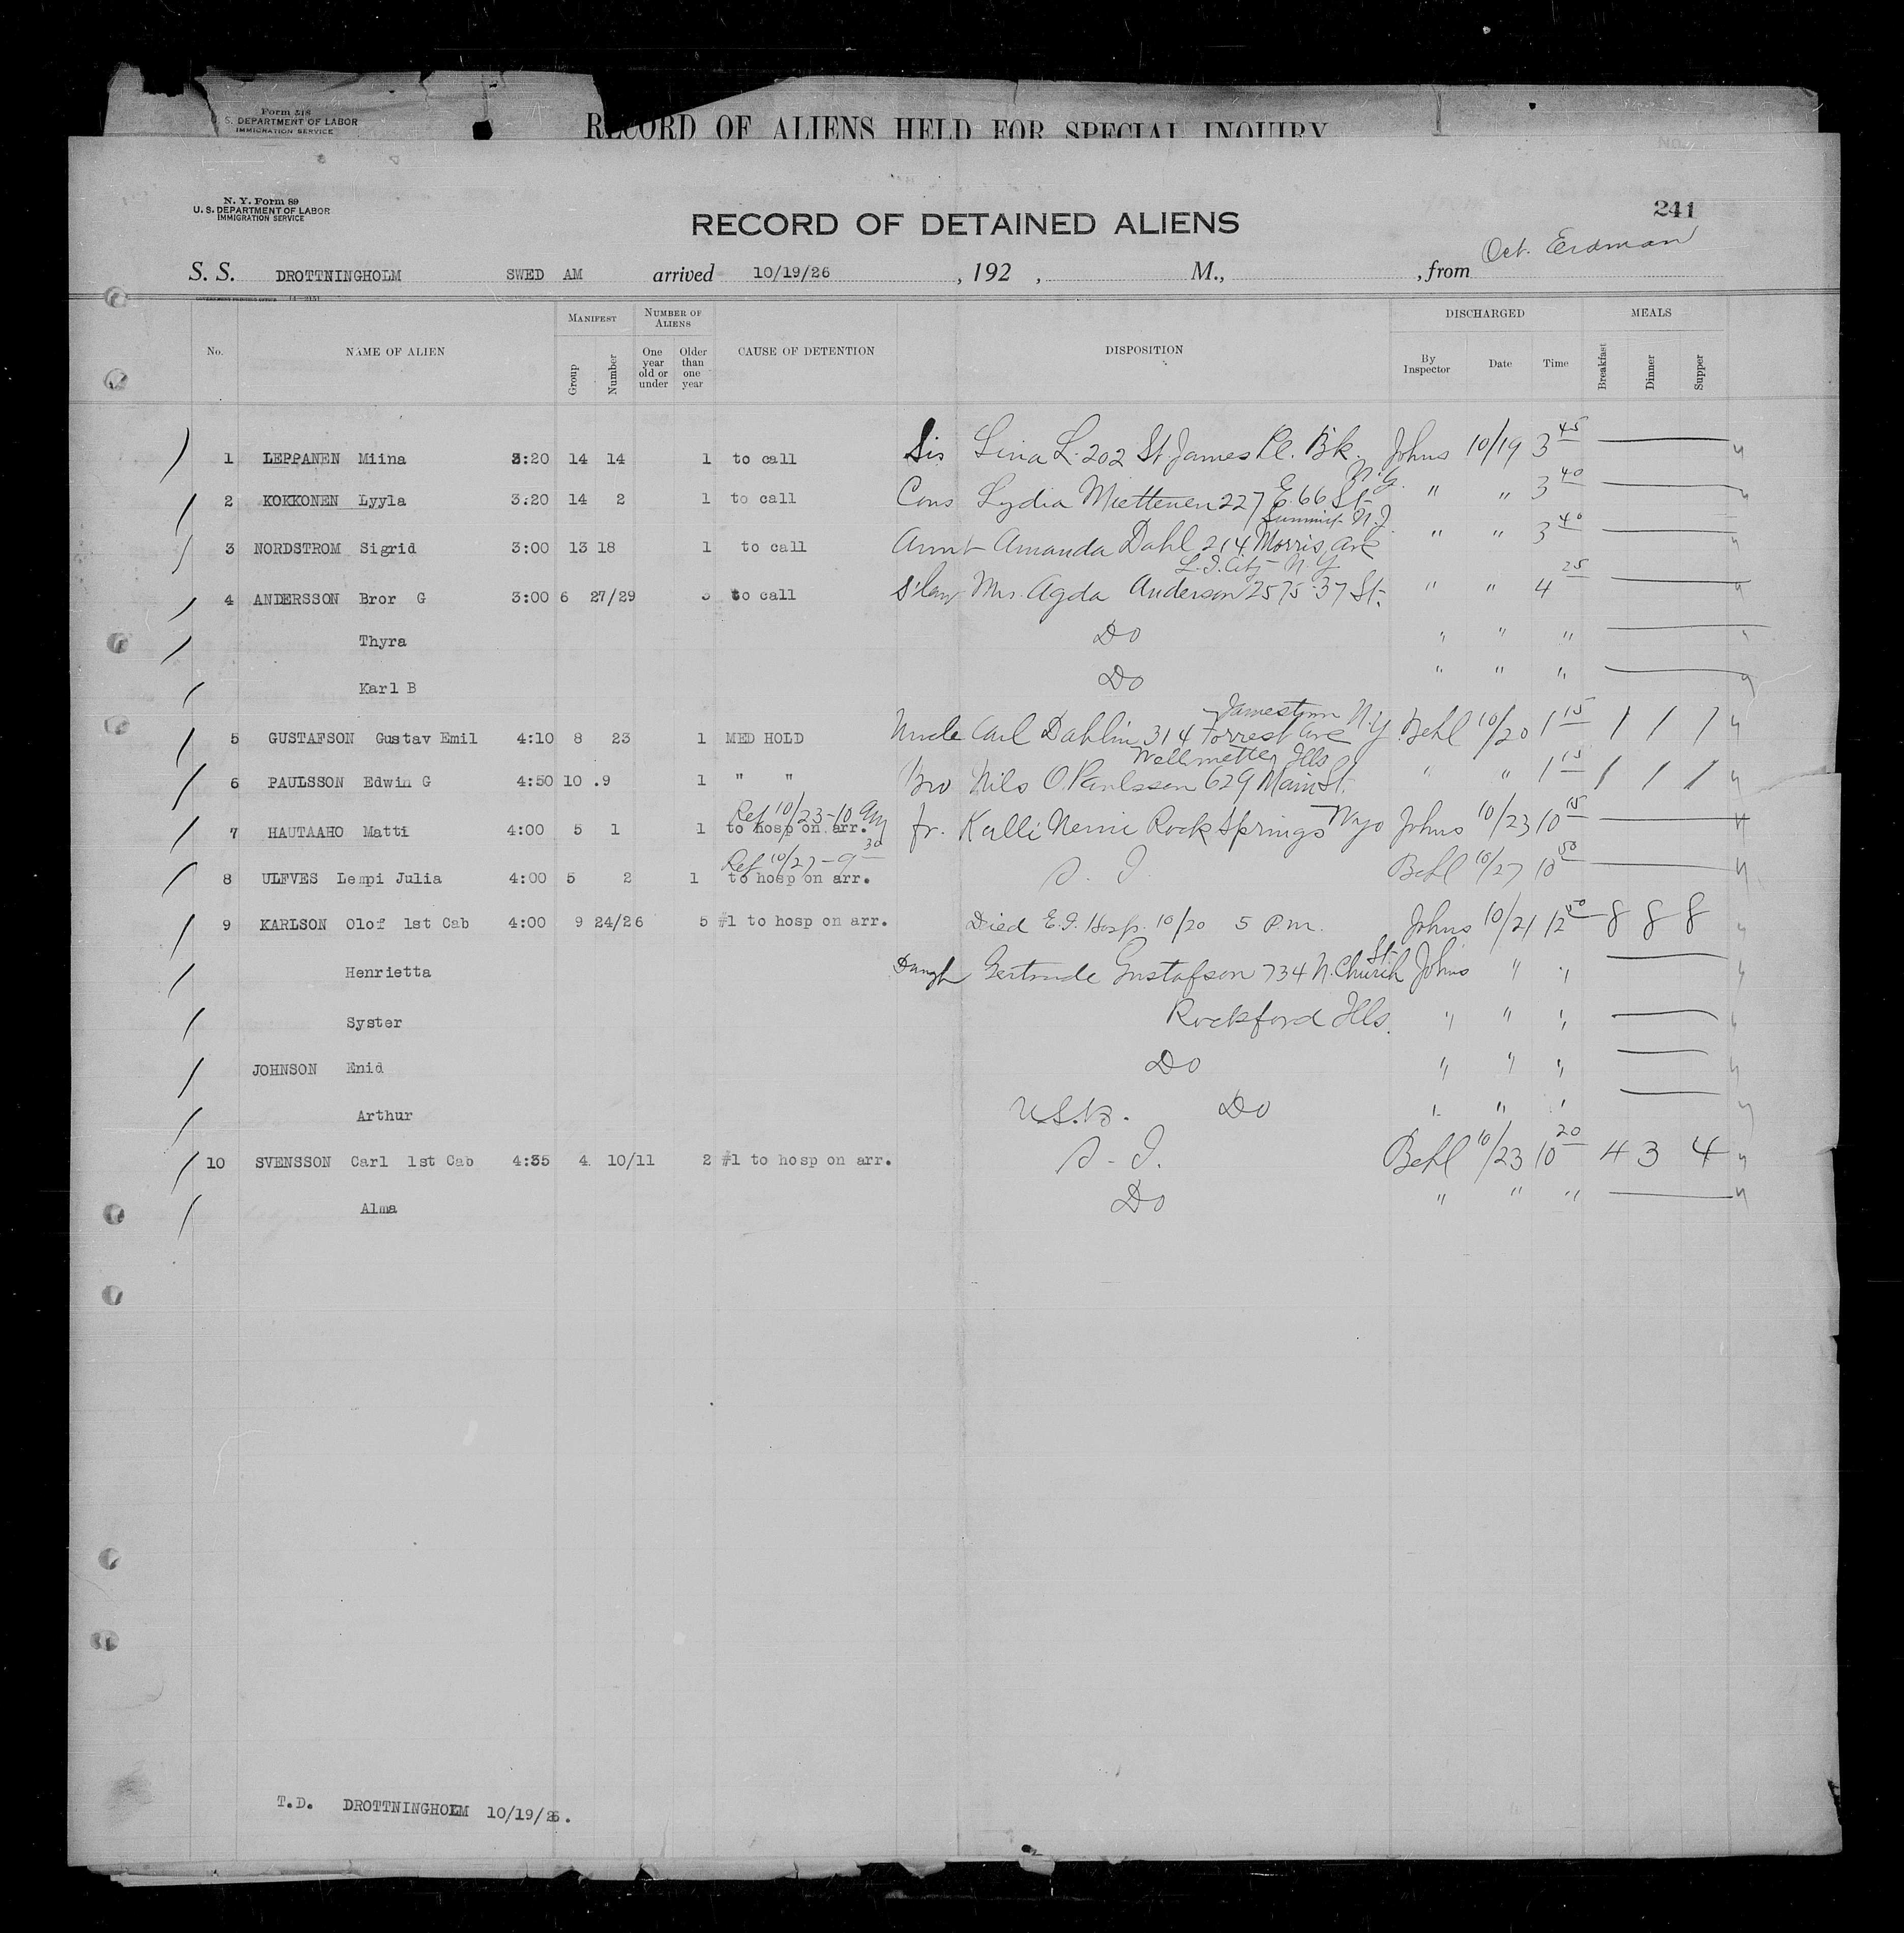 Form 518
S. DEPARTMENT OF LABOR
IMMIGRATION SERVICE
RECORD OF ALIENS HELD FOR SPECIAL INQUIRY
N. Y. Form 89
U. S. DEPARTMENT OF LABOR
IMMIGRATION SERVICE
241
RECORD OF DETAINED ALIENS
Oct. Erdman
S. S. DROTTNINGHOLM SWED AM arrived 10/19/26 , 192 , M., , from
No. NAME OF ALIEN MANIFEST Group Number NUMBER OF ALIENS One year old or under Older than one year CAUSE OF DETENTION DISPOSITION DISCHARGED By Inspector Date Time MEALS Breakfast Dinner Supper
1 LEPPANEN Miina 3:20 14 14 1 to call Sis Lina L. 202 St. James Pl. Bk. Johns 10/19 3 45
N.Y.
2 KOKKONEN Lyyla 3:20 14 2 1 to call Cous Lydia Miettenen 227 E. 66 St " " 3 40
Summit N.J.
3 NORDSTROM Sigrid 3:00 13 18 1 to call Aunt Amanda Dahl 214 Morris Ave " " 3 40
L.I. City N.Y.
4 ANDERSSON Bror G 3:00 6 27/29 3 to call S'law Mrs. Agda Anderson 2575-37 St. " " 4 25
Thyra Do " " "
Karl B Do " " "
Jamestown N.Y
5 GUSTAFSON Gustav Emil 4:10 8 23 1 MED HOLD Uncle Carl Dahlin 314 Forrest Ave Behl 10/20 1 15 1 1 1
Wellmette Ills
6 PAULSSON Edwin G 4:50 10 .9 1 " " Bro Nils O. Paulsson 629 Main St. " " 1 15 1 1 1
Ref 10/23-10 AM
7 HAUTAAHO Matti 4:00 5 1 1 to hosp on arr. fr. Kalli Nemi Rock Springs Wyo Johns 10/23 10 15
Ref 10/27-9 30
8 ULFVES Lempi Julia 4:00 5 2 1 to hosp on arr. S. I. Behl 10/27 10 50
9 KARLSON Olof 1st Cab 4:00 9 24/26 5 #1 to hosp on arr. Died E.I. Hosp. 10/20 5 P.m. Johns 10/21 12 50 8 8 8
Henrietta Daugh Gertrude Gustafson 734 N. Church St. Johns " "
Syster Rockford Ills. " " "
JOHNSON Enid Do " " "
Arthur U.S.B. Do " " "
10 SVENSSON Carl 1st Cab 4:35 4 10/11 2 #1 to hosp on arr. S. I. Behl 10/23 10 20 4 3 4
Alma Do " " "
T.D. DROTTNINGHOLM 10/19/26.